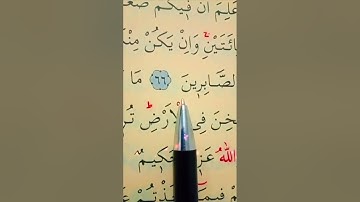 عَلِمَ اَنَّ ف۪يكُمْ ضَعْ
ائَتَيْنِ وَاِنْ يَكُنْ مِنْ
الصَّابِر۪ينَ ﴿٦٦﴾ مَا
خِنَ فِي الْاَرْضِ تُر
اللّٰهُ عَز حَك۪يمٌ
مْ ف۪يمَٓا ذْتُمْ